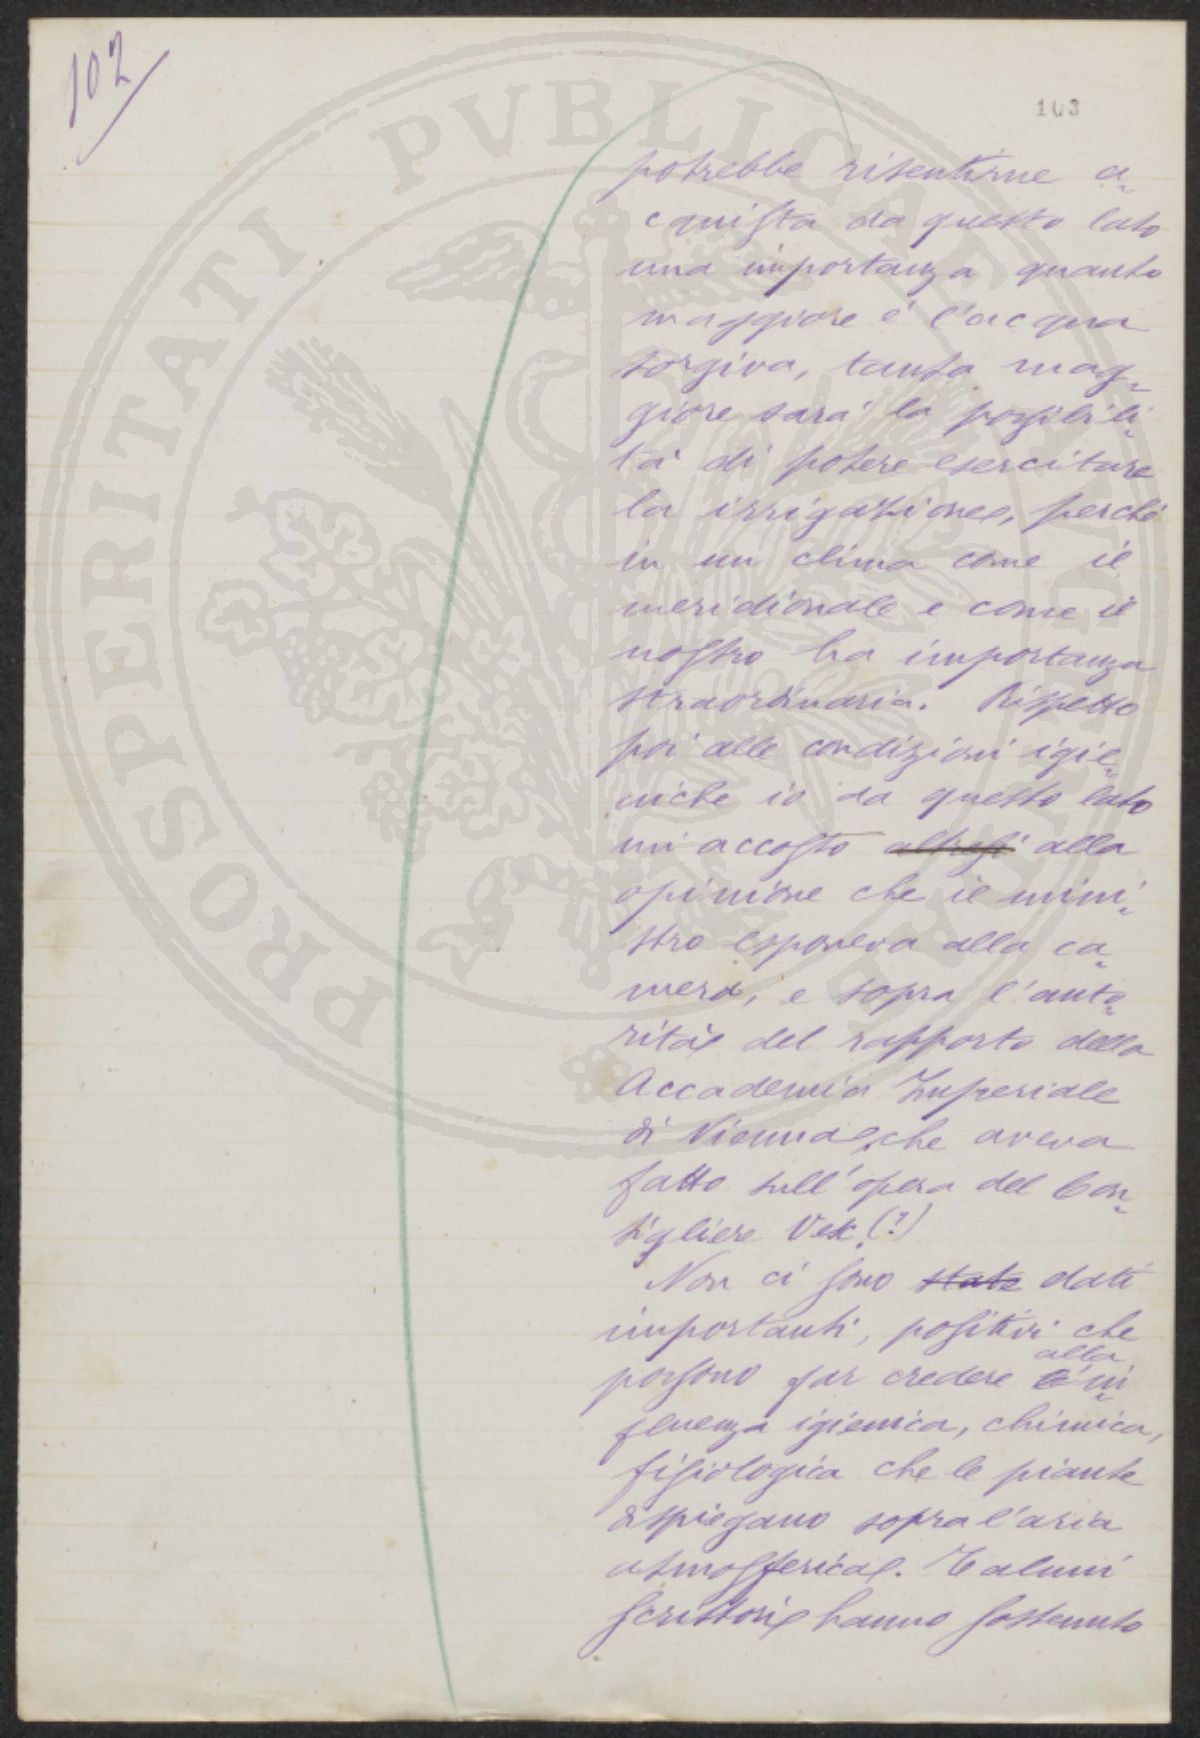 102
103
PROSPERITATI PVBLICAE
potrebbe risentirne a-
cquista da questo lato
una importanza quanto
maggiore è l'acqua
sorgiva, tanta mag-
giore sarà la possibili-
tà di potere esercitare
la irrigazione, perchè
in un clima come il
meridionale e come il
nostro ha importanza
straordinaria. Rispetto
poi alle condizioni igie-
niche io da questo lato
mi accosto altresì alla
opinione che il mini-
stro esponeva alla ca-
mera, e sopra l'auto-
rità del rapporto della
Accademia Imperiale
di Vienna, che aveva
fatto sull'opera del Con-
sigliere Vex (?)
Non ci sono state dati
importanti, positivi che
alla
possono far credere l'in-
fluenza igienica, chimica,
fisiologica che le piante
dispiegano sopra l'aria
atmosferica. E alcuni
scrittori hanno sostenuto